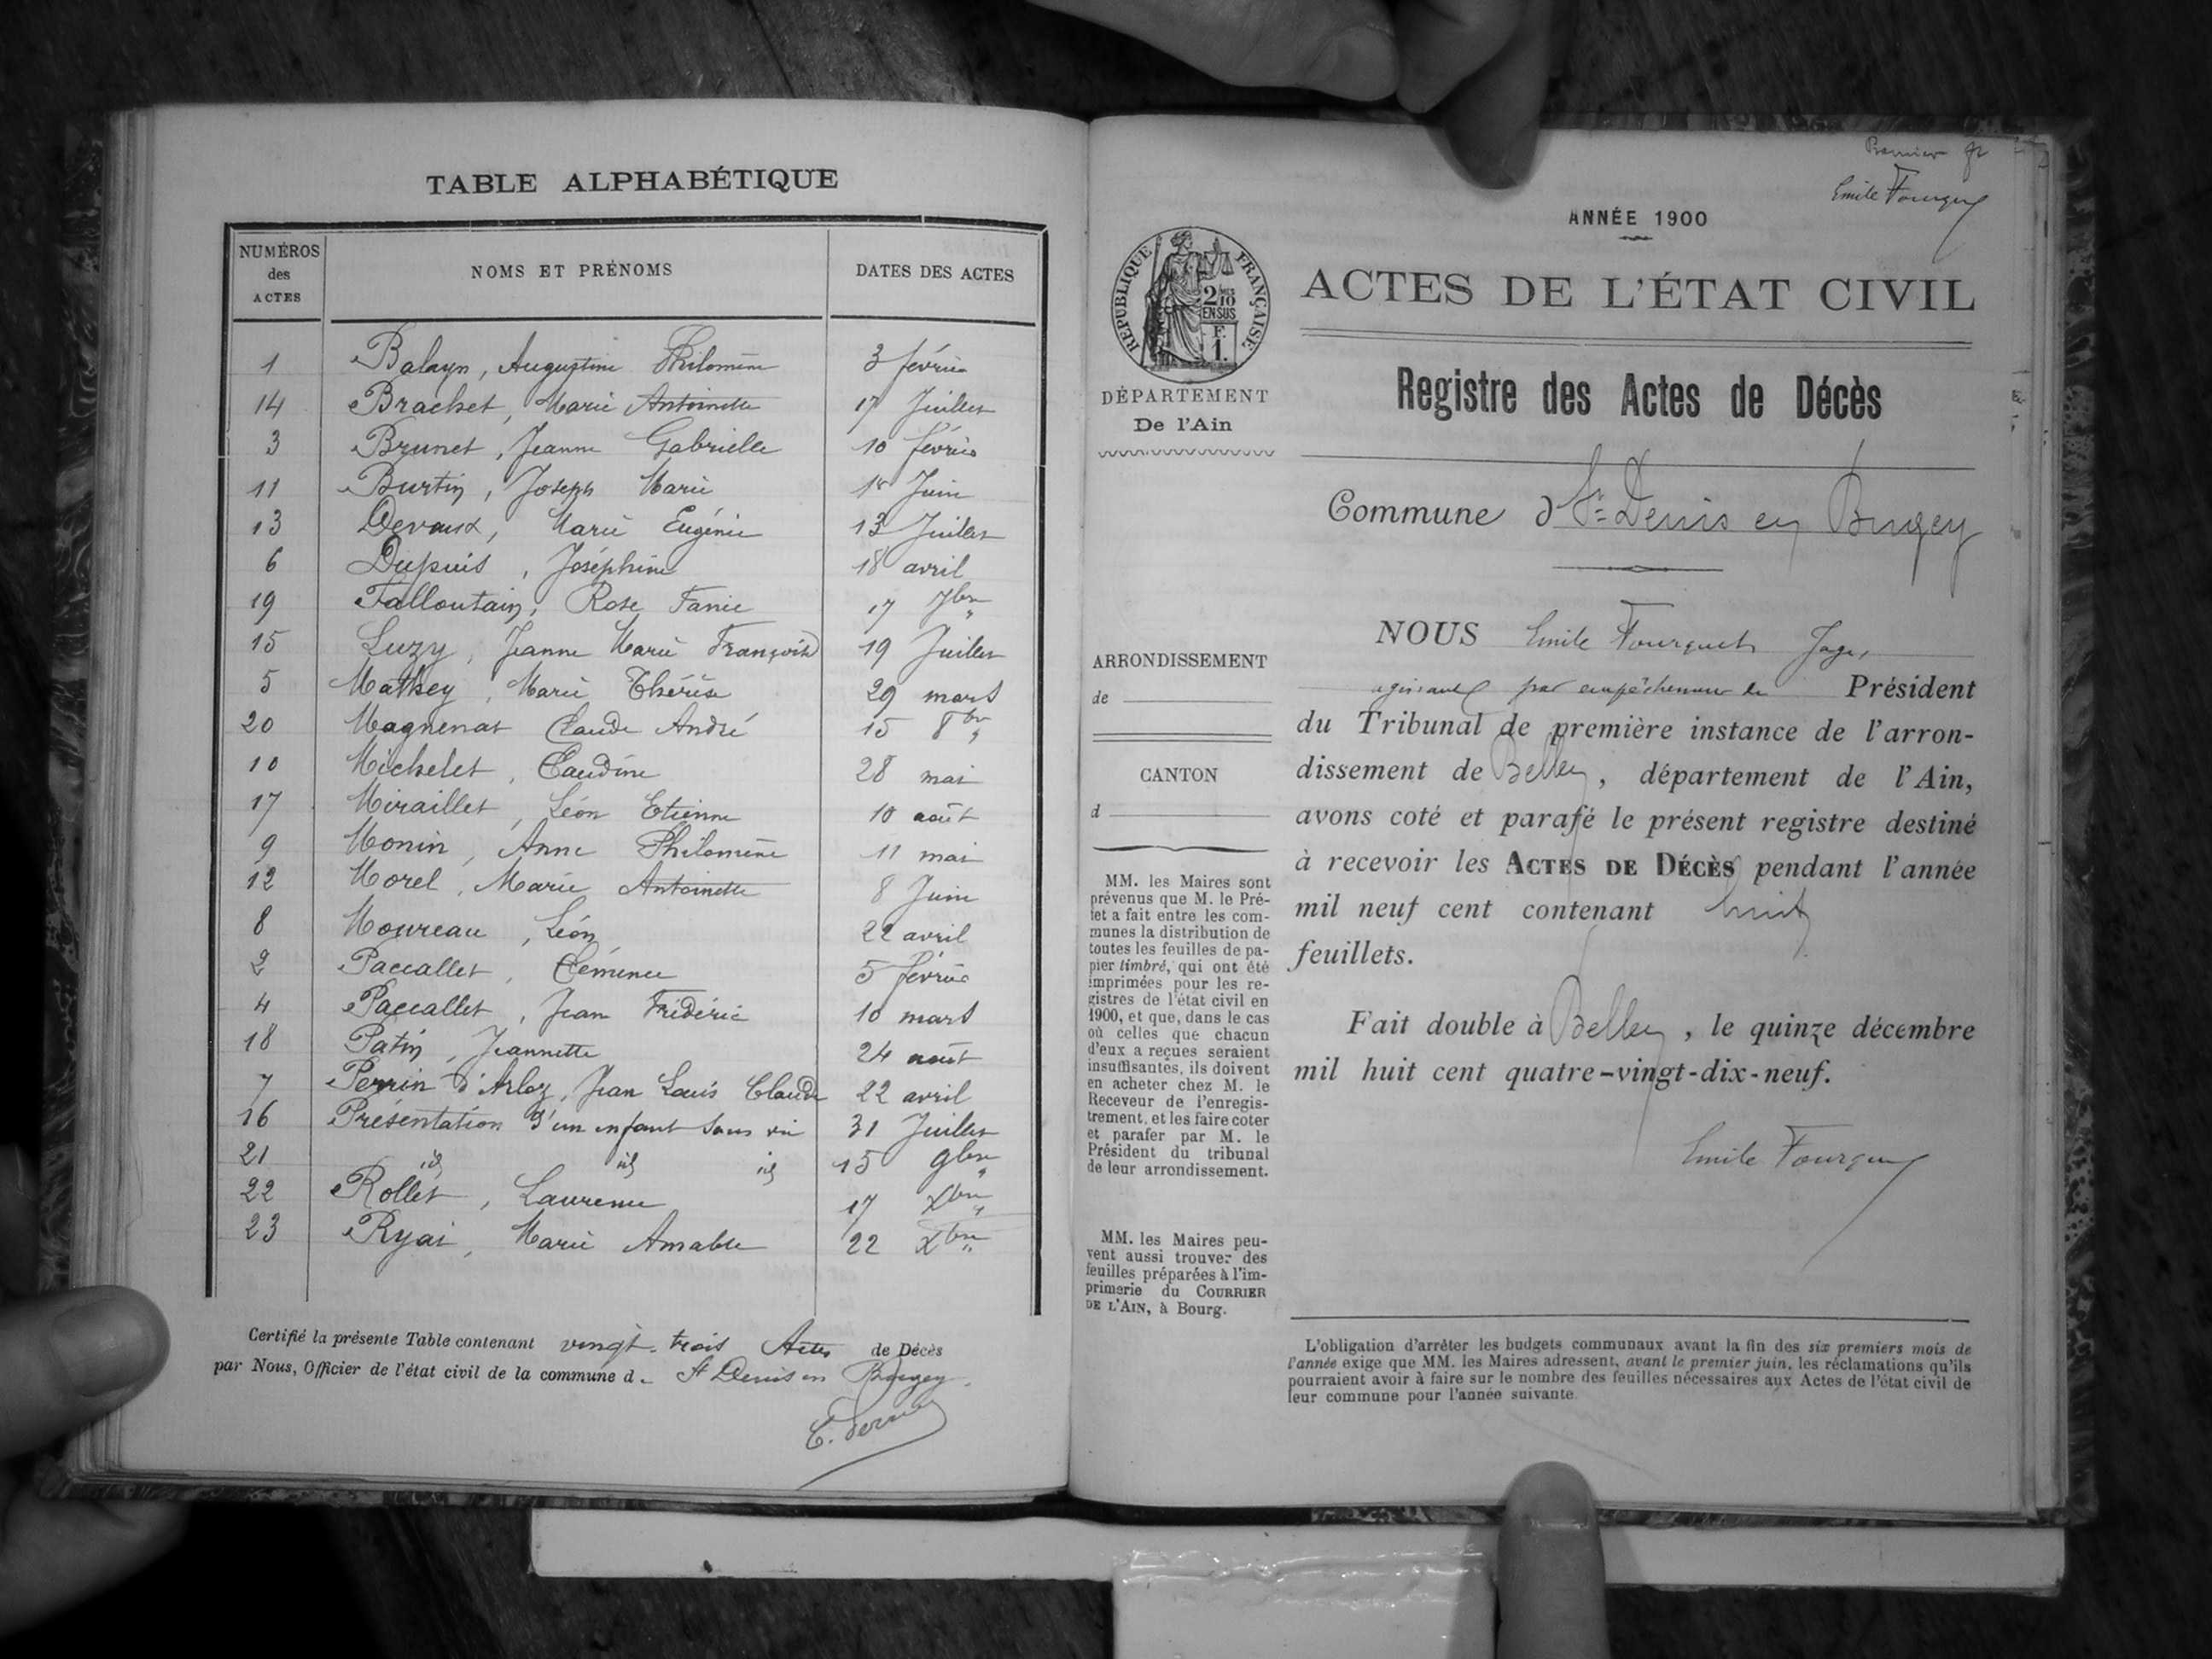 TABLE ALPHABÉTIQUE
NUMÉROS des ACTES NOMS ET PRÉNOMS DATES DES ACTES
1 Balayn, Augustine Philomène 3 février
14 Brachet, Marie Antoinette 17 Juillet
3 Brunet, Jeanne Gabrielle 10 février
11 Burtin, Joseph Marie 1er Juin
13 Devaux, Marie Eugénie 13 Juillet
6 Dupuis, Joséphine 18 avril
19 Falloutain, Rose Fanie 17 7bre
15 Luzy, Jeanne Marie Françoise 19 Juillet
5 Mathey, Marie Thérèse 29 mars
20 Magnenat Claude André 15 8bre
10 Michelet, Claudine 28 mai
17 Miraillet, Léon Etienne 10 août
9 Monin, Anne Philomène 11 mai
12 Morel, Marie Antoinette 8 Juin
8 Moureau, Léon 22 avril
2 Paccallet, Clémence 5 février
4 Paccallet, Jean Frédéric 10 mars
18 Patin, Jeannette 24 août
7 Perrin d'Arloz, Jean Louis Claude 22 avril
16 Présentation d'un enfant sans vie 31 Juillet
21 id id id 15 9bre
22 Rollet, Laurence 17 Xbre
23 Ryai, Marie Amable 22 Xbre
Certifié la présente Table contenant vingt-trois Actes de Décès
par Nous, Officier de l'état civil de la commune d. St Denis en Bugey.
Emile Fourquet
ANNÉE 1900
RÉPUBLIQUE FRANÇAISE
2/10 EN SUS
F. 1.
ACTES DE L'ÉTAT CIVIL
DÉPARTEMENT
De l'Ain
Registre des Actes de Décès
Commune d St Denis en Bugey
ARRONDISSEMENT
de
CANTON
d
MM. les Maires sont
prévenus que M. le Pré-
fet a fait entre les com-
munes la distribution de
toutes les feuilles de pa-
pier timbré, qui ont été
imprimées pour les re-
gistres de l'état civil en
1900, et que, dans le cas
où celles que chacun
d'eux a reçues seraient
insuffisantes, ils doivent
en acheter chez M. le
Receveur de l'enregis-
trement, et les faire coter
et parafer par M. le
Président du tribunal
de leur arrondissement.
MM. les Maires peu-
vent aussi trouver des
feuilles préparées à l'im-
primerie du COURRIER
DE L'AIN, à Bourg.
NOUS Emile Fourquet Juge,
agissant par empêchement du Président
du Tribunal de première instance de l'arron-
dissement de Belley, département de l'Ain,
avons coté et parafé le présent registre destiné
à recevoir les ACTES DE DÉCÈS pendant l'année
mil neuf cent contenant huit
feuillets.
Fait double à Belley, le quinze décembre
mil huit cent quatre-vingt-dix-neuf.
Emile Fourquet
L'obligation d'arrêter les budgets communaux avant la fin des six premiers mois de
l'année exige que MM. les Maires adressent, avant le premier juin, les réclamations qu'ils
pourraient avoir à faire sur le nombre des feuilles nécessaires aux Actes de l'état civil de
leur commune pour l'année suivante.